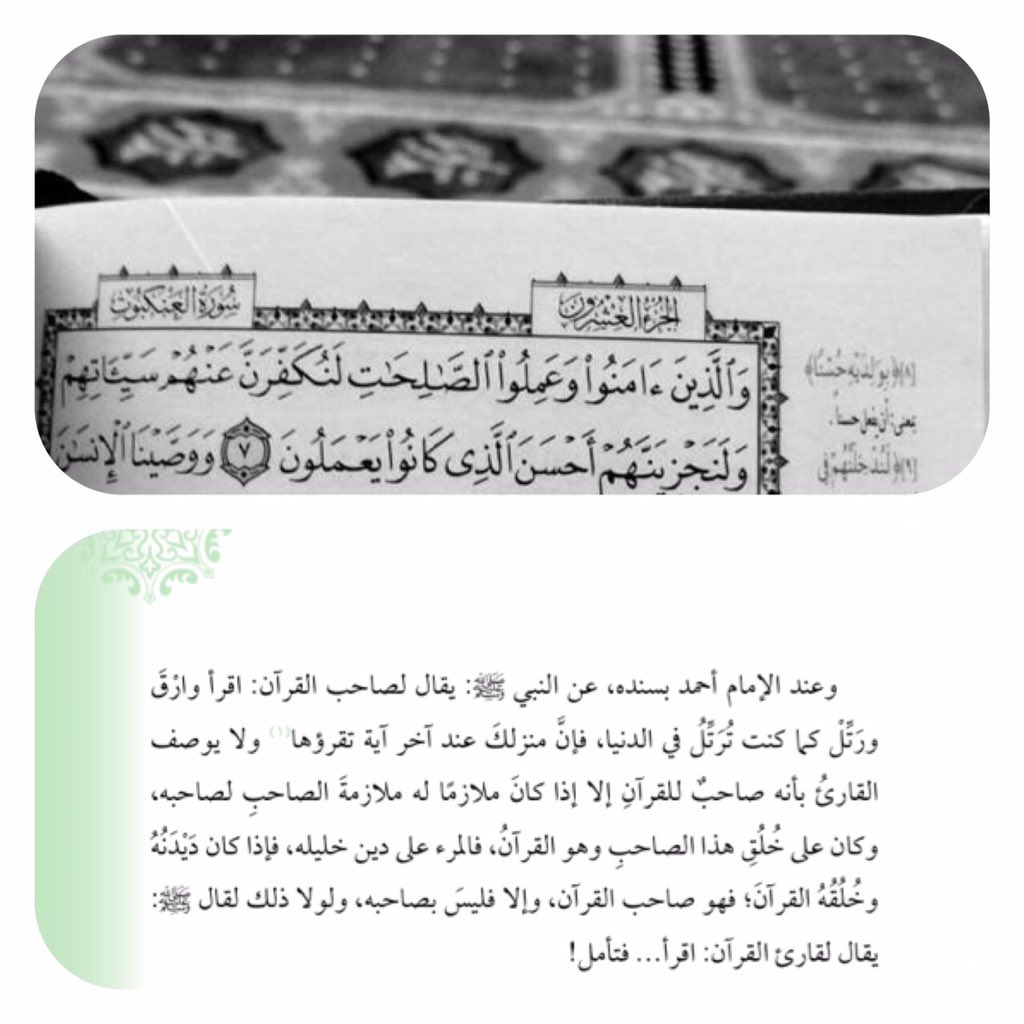 الجزء العشرون
سورة العنكبوت
وَٱلَّذِينَ ءَامَنُوا۟ وَعَمِلُوا۟ ٱلصَّـٰلِحَـٰتِ لَنُكَفِّرَنَّ عَنْهُمْ سَيِّـَٔاتِهِمْ
وَلَنَجْزِيَنَّهُمْ أَحْسَنَ ٱلَّذِى كَانُوا۟ يَعْمَلُونَ ٧ وَوَصَّيْنَا ٱلْإِنسَـٰنَ
[٨] ﴿بِوَٰلِدَيْهِ حُسْنًا﴾
يعني: أن يفعل حسنا.
[٩] ﴿لَنُدْخِلَنَّهُمْ فِى
وعند الإمام أحمد بسنده، عن النبي ﷺ: يقال لصاحب القرآن: اقرأ وارْقَ
ورَتِّلْ كما كنت تُرَتِّلُ في الدنيا، فإنَّ منزلكَ عند آخر آية تقرؤها(١) ولا يوصف
القارئُ بأنه صاحبٌ للقرآنِ إلا إذا كانَ ملازمًا له ملازمةَ الصاحبِ لصاحبه،
وكان على خُلُقِ هذا الصاحبِ وهو القرآنُ، فالمرء على دين خليله، فإذا كان دَيْدَنُهُ
وخُلُقُهُ القرآنَ؛ فهو صاحب القرآن، وإلا فليسَ بصاحبه، ولولا ذلك لقال ﷺ:
يقال لقارئ القرآن: اقرأ... فتأمل!